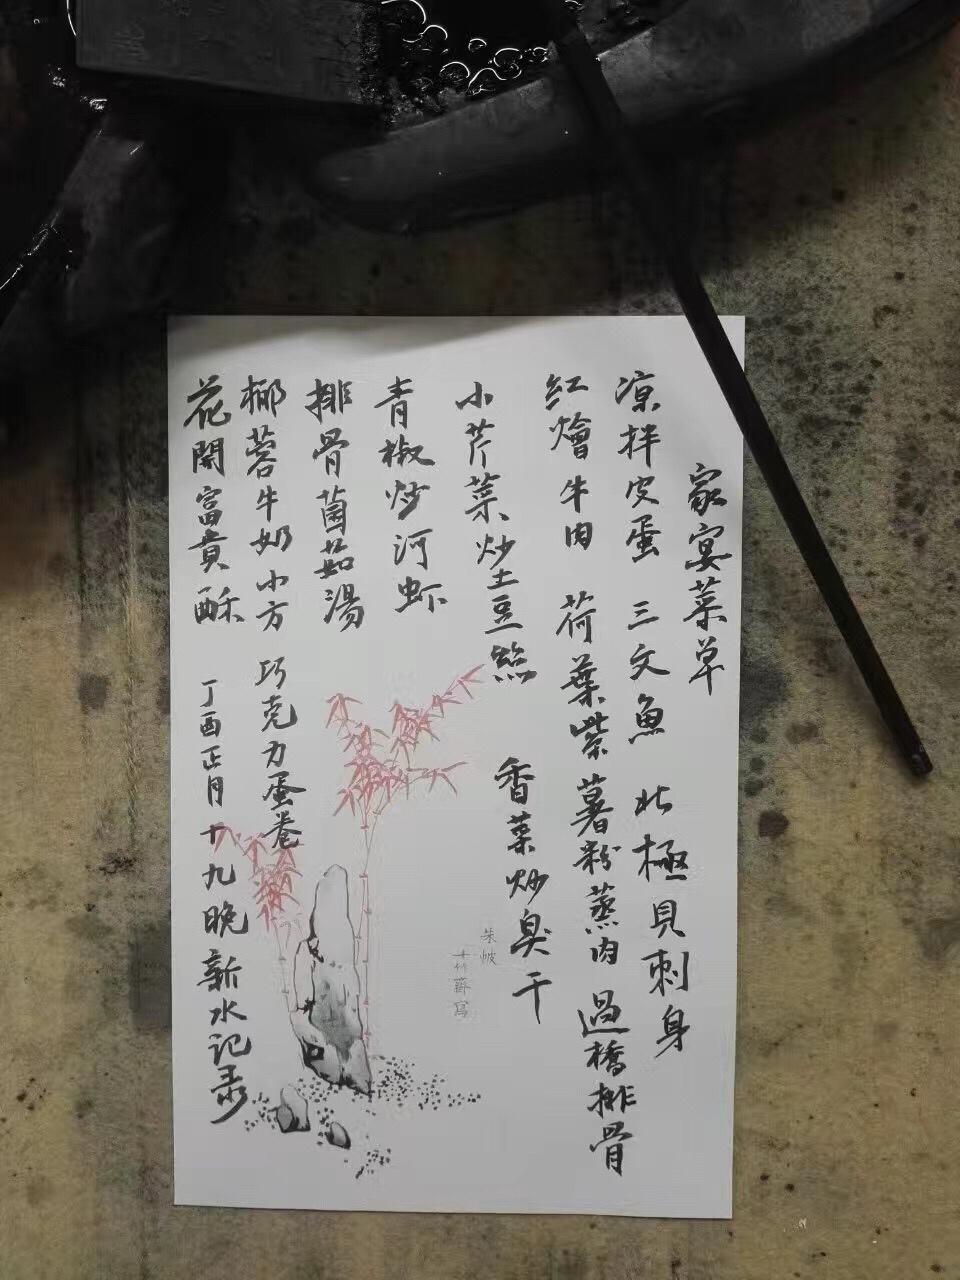 家宴菜单
凉拌皮蛋 三文魚 北極貝刺身
紅燴牛肉 荷葉紫薯粉蒸肉 過橋排骨
小芹菜炒土豆絲 香菜炒臭干
青椒炒河虾
排骨菌茹湯
椰蓉牛奶小方 巧克力蛋卷
花開富貴酥 丁酉正月十九晚新水记录
十竹齋寫